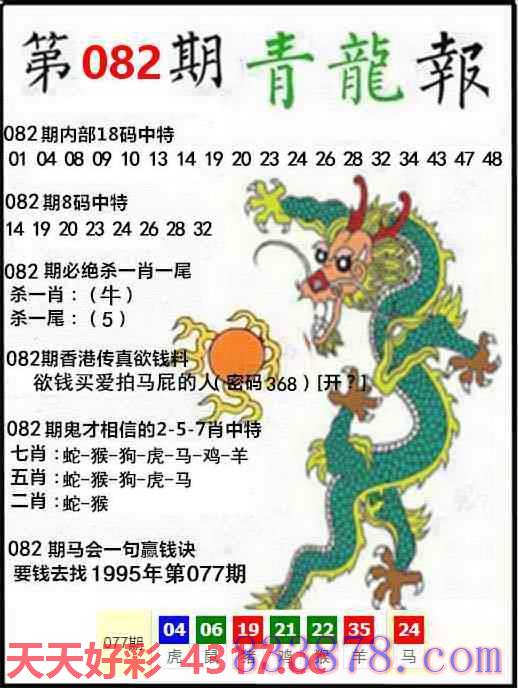 第082期青龍報
082期内部18码中特
01 04 08 09 10 13 14 19 20 23 24 26 28 32 34 43 47 48
082期8码中特
14 19 20 23 24 26 28 32
082 期必绝杀一肖一尾
杀一肖：（牛）
杀一尾：（5）
082期香港传真欲钱料
欲钱买爱拍马屁的人(密码368)[开？]
082期鬼才相信的2-5-7肖中特
七肖：蛇-猴-狗-虎-马-鸡-羊
五肖：蛇-猴-狗-虎-马
二肖：蛇-猴
082 期马会一句赢钱诀
要钱去找1995年第077期
077期 04 06 19 21 22 35 24
虎 鼠 猪 鸡 猴 羊 马
天天好彩 4317.cc
838878.com